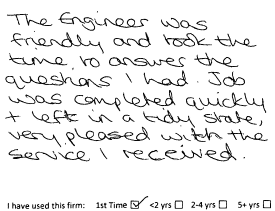 The Engineer was
friendly and took the
time, to answer the
questions I had. Job
was completed quickly
+ left in a tidy state,
very pleased with the
service I received.
I have used this firm: 1st Time ☑ <2 yrs ☐ 2-4 yrs ☐ 5+ yrs ☐